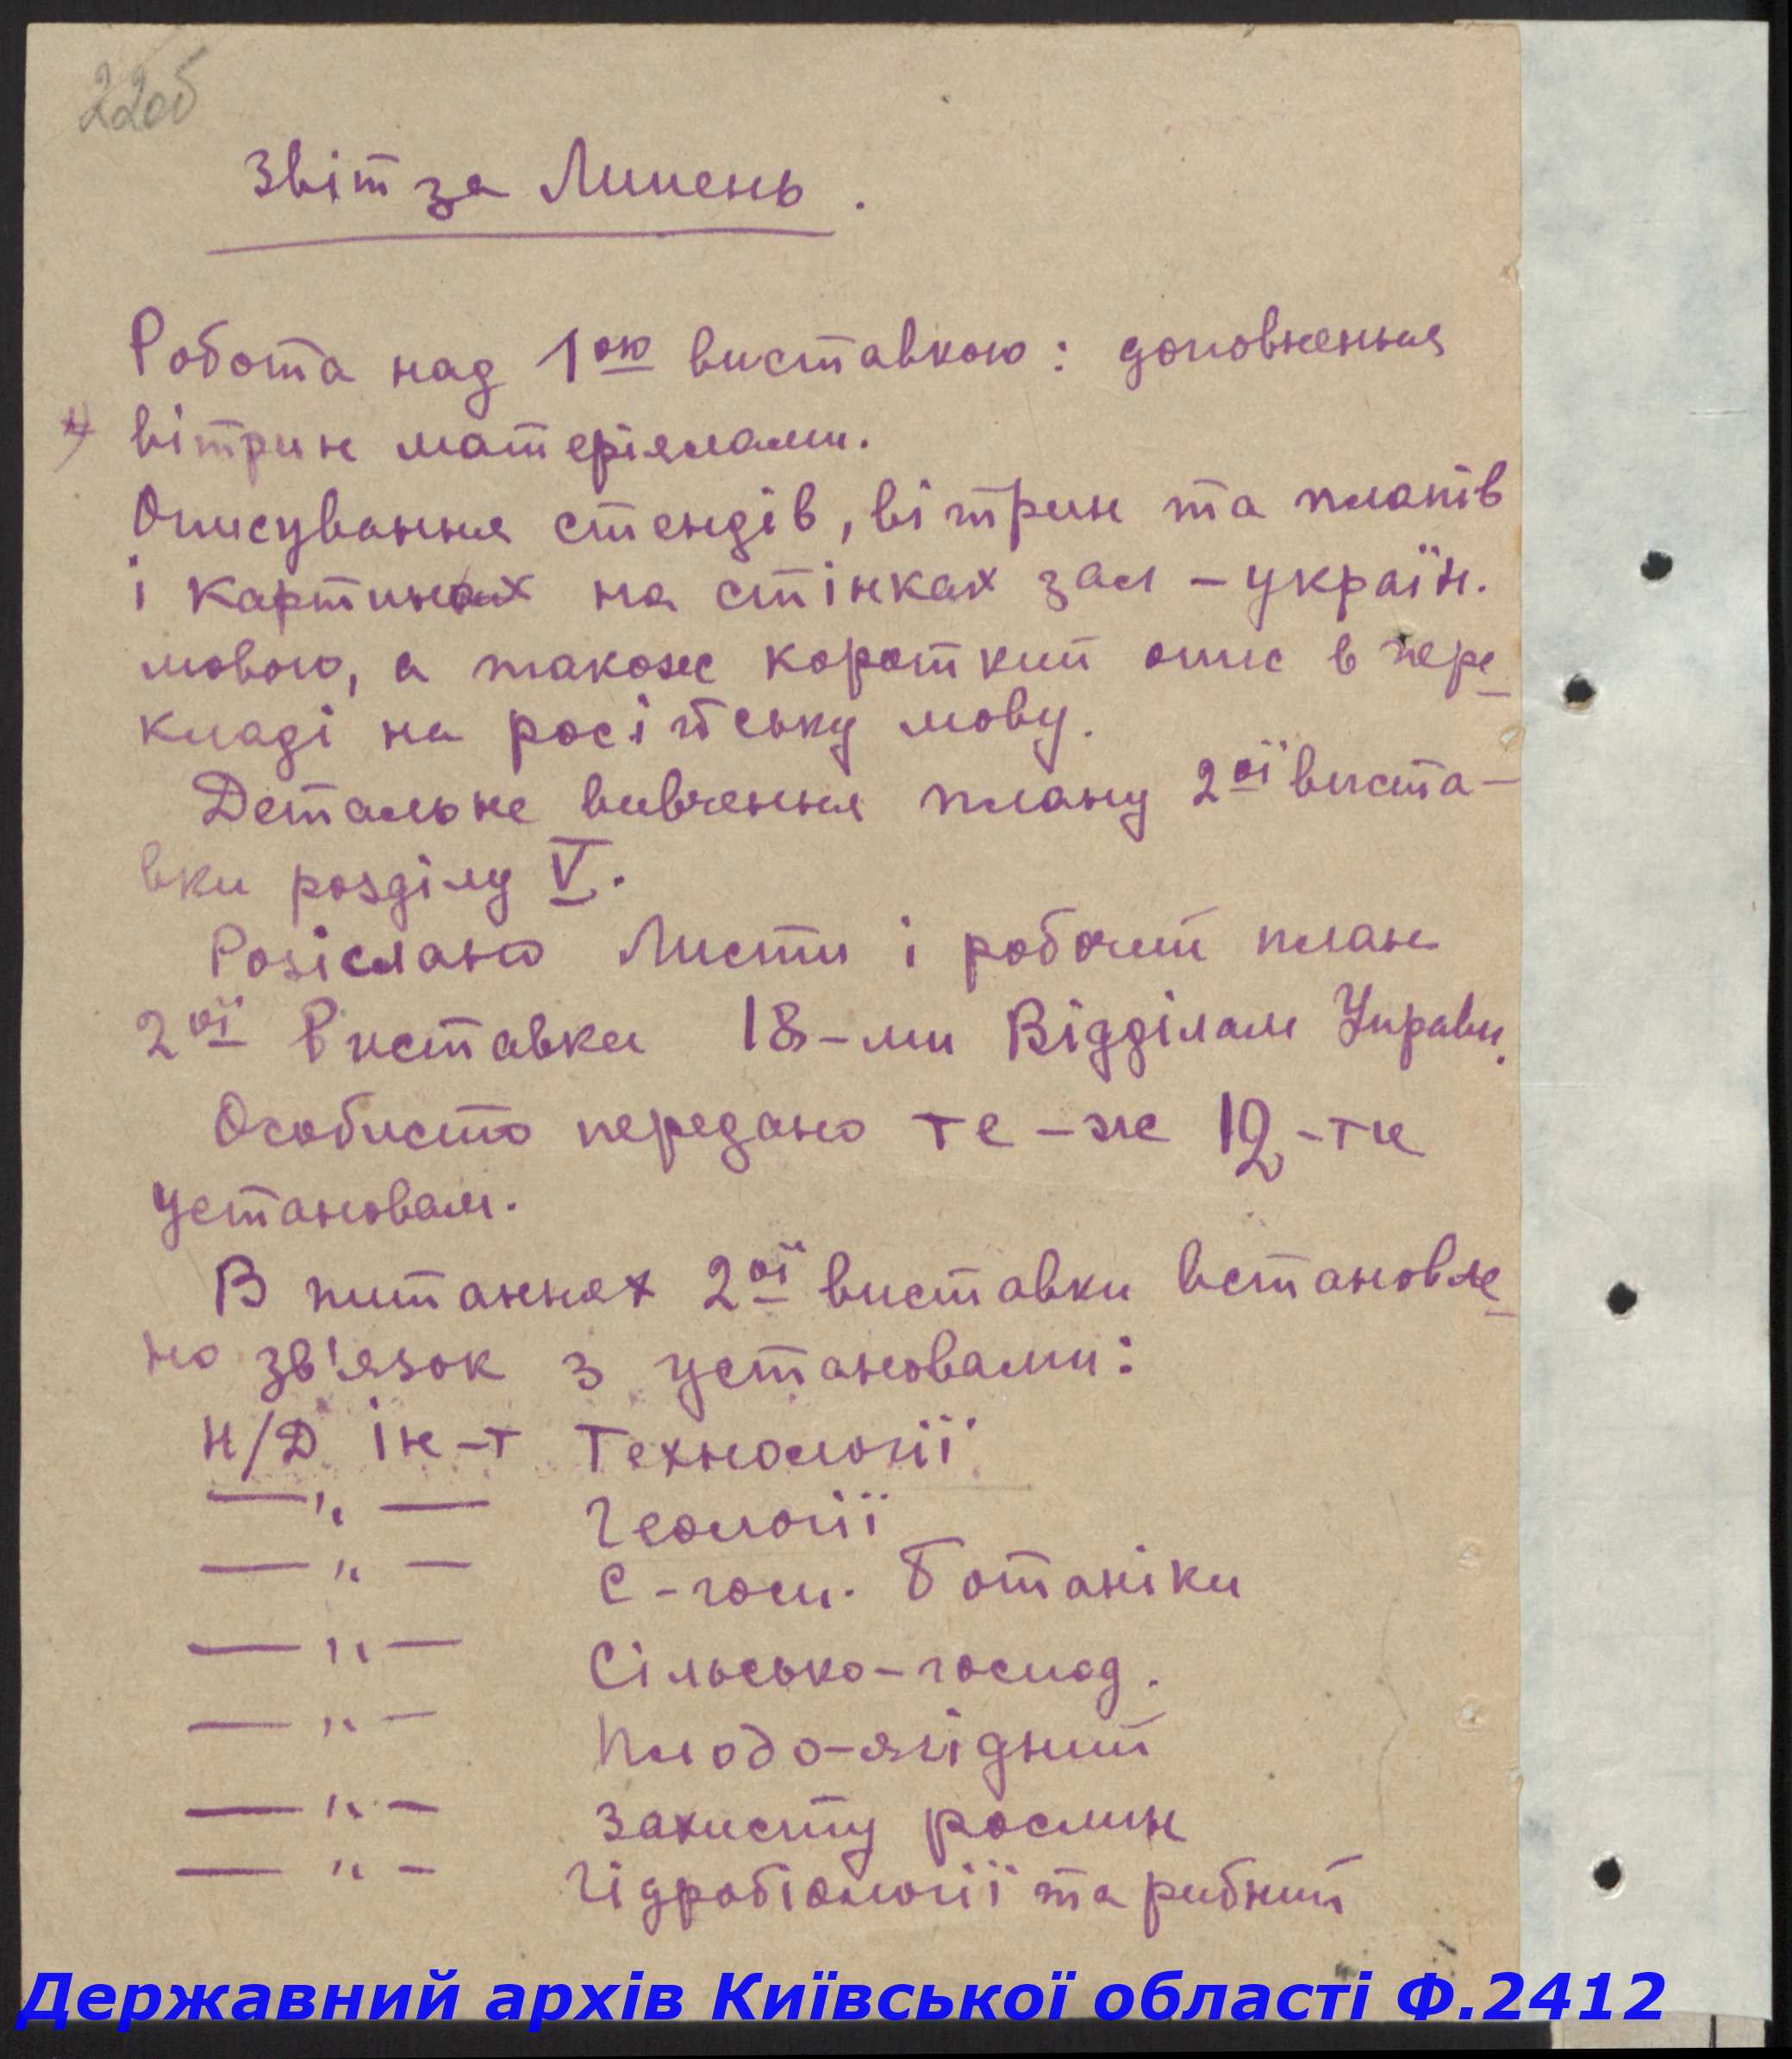 22об
Звіт за Липень.
Робота над 1ою виставкою: доповнення
вітрин матеріялами.
Описування стендів, вітрин та планів
і картинах на стінках зал – україн.
мовою, а також короткий опис в пере
кладі на російську мову.
Детальне вивчення плану 2ої виста–
вки розділу V.
Розіслано Листи і робочий план
2ої Виставки 18–ми Відділам Управи.
Особисто передано те–же 12–ти
установам.
В питаннях 2ої виставки встановле
но зв'язок з установами:
Н/Д Ін–т Технології
— " — Геології
— " — С–госп. Ботаніки
— " — Сільсько–господ.
— " — Плодо–ягідний
— " — Захисту рослин
— " — Гідробіології та рибний
Державний архів Київської області Ф.2412